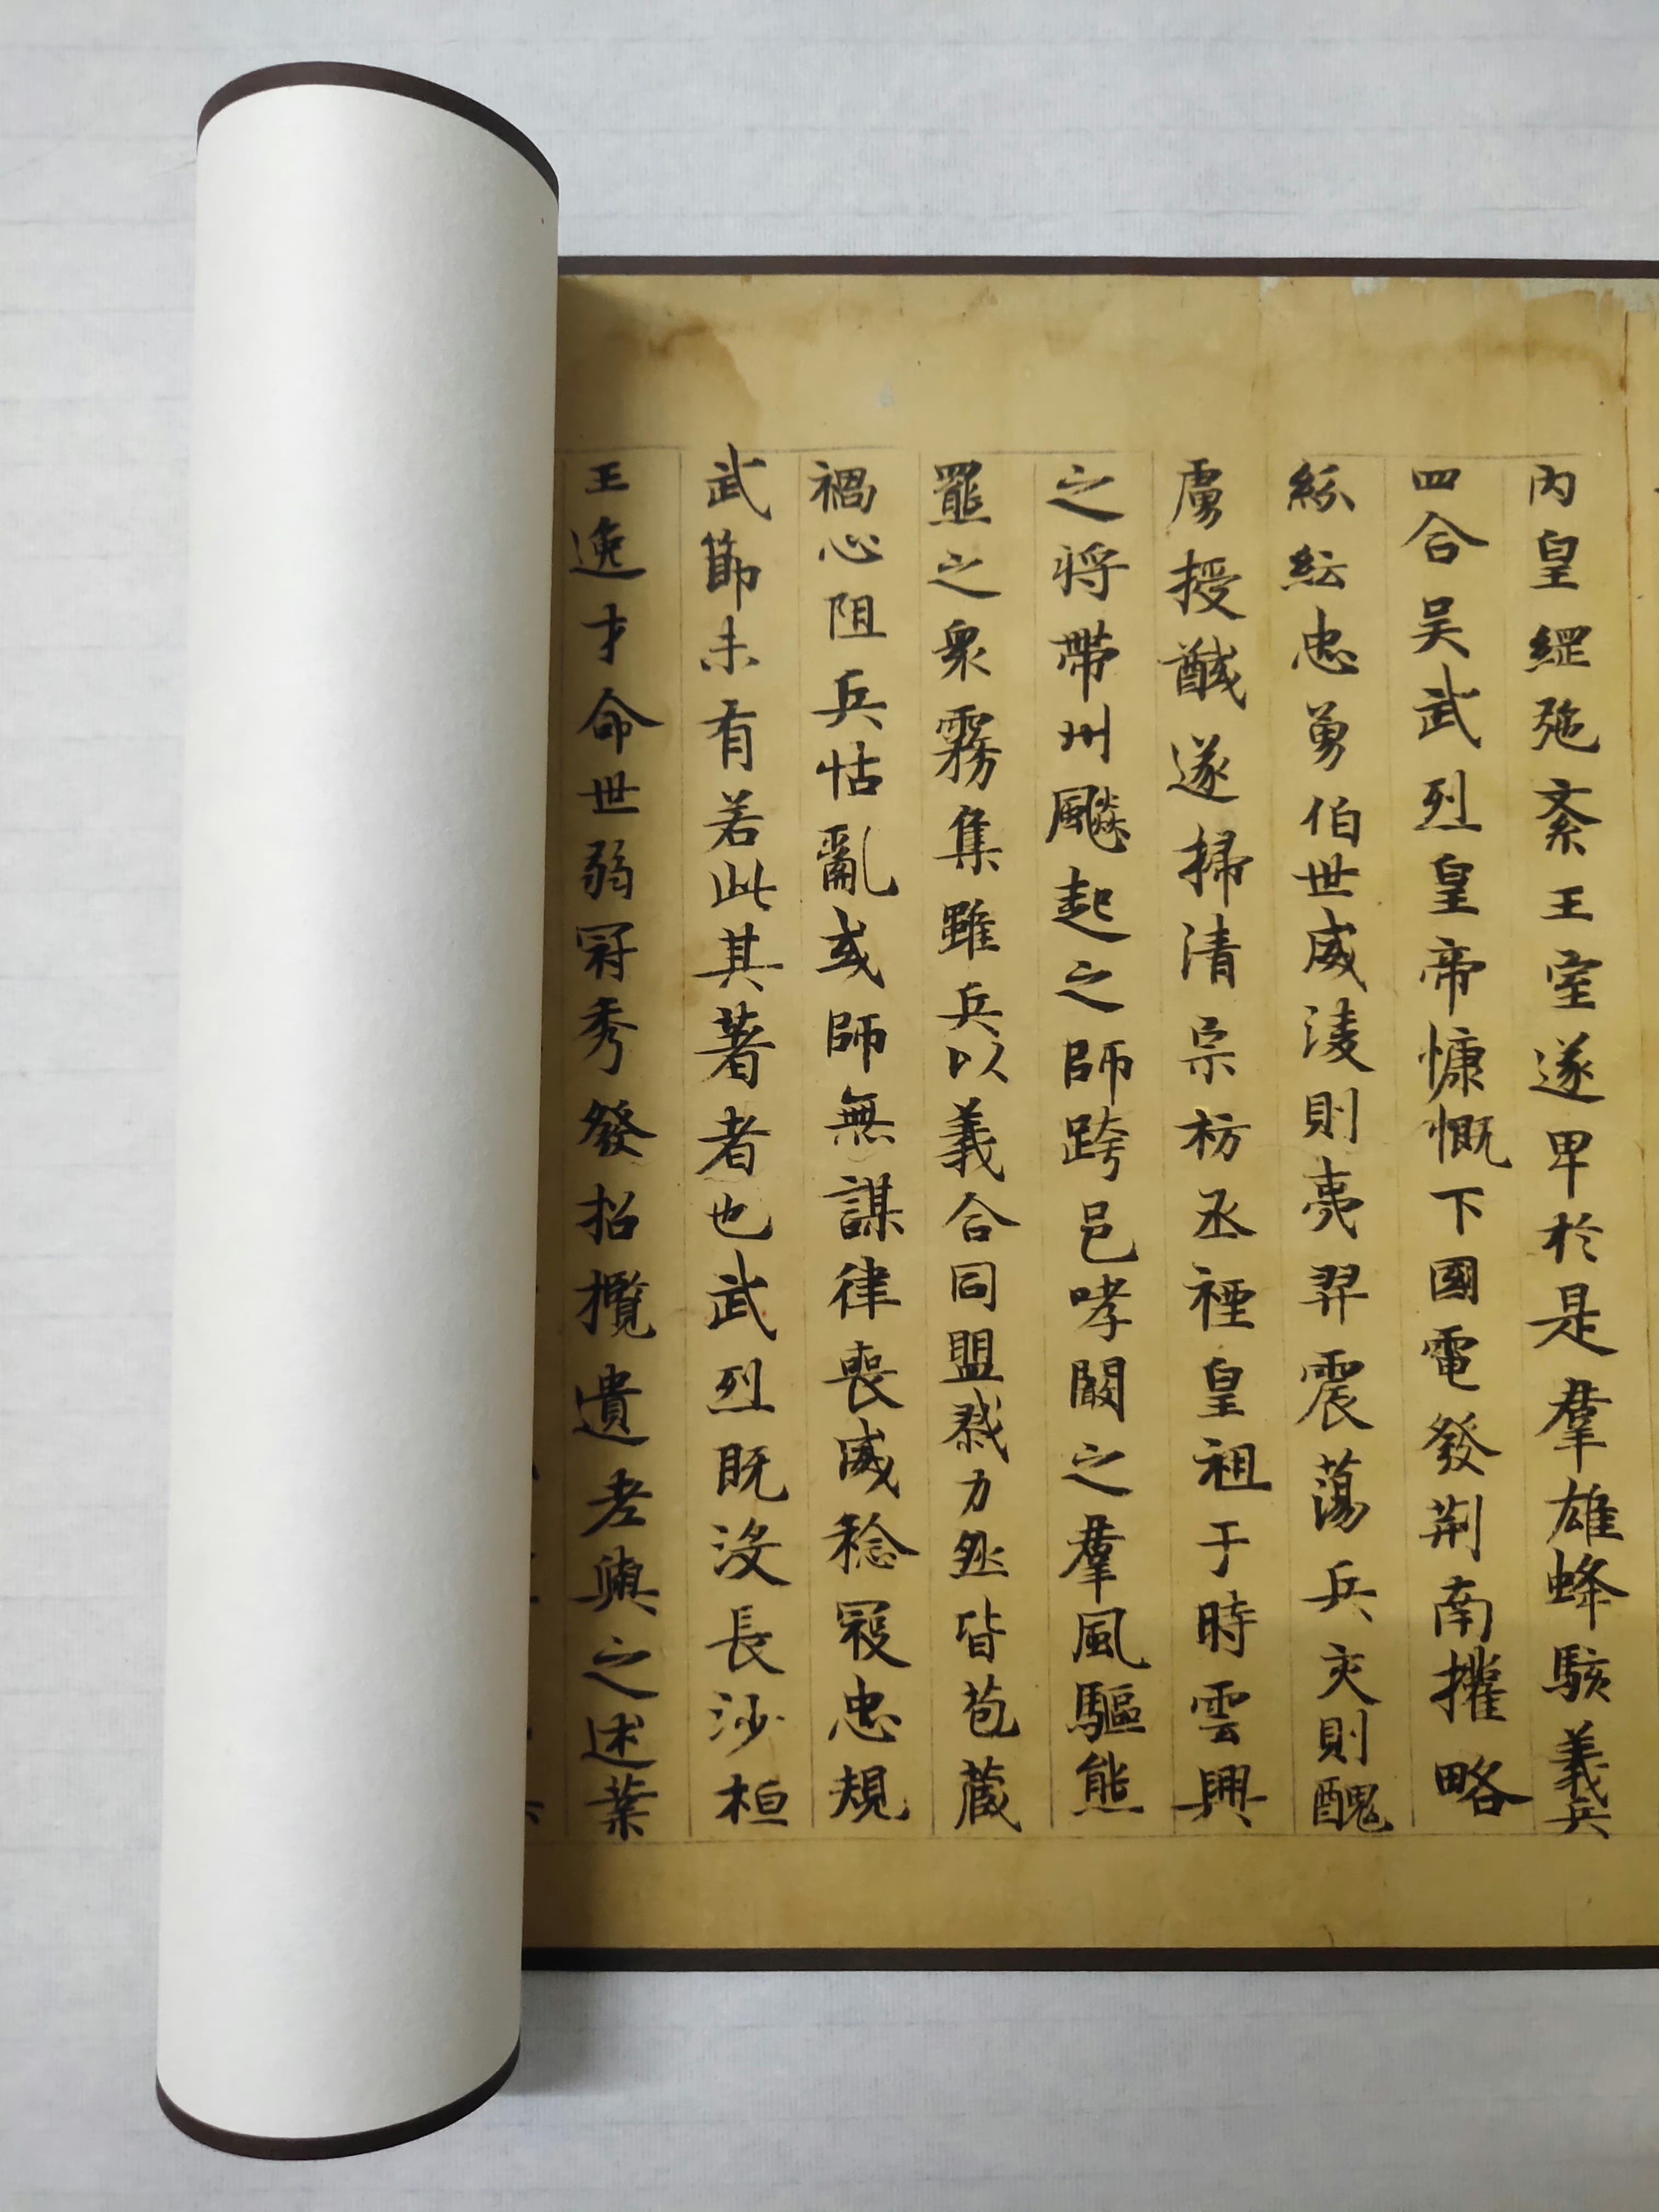 內皇綱弛紊王室遂卑於是羣雄蜂駭義兵
四合吴武烈皇帝慷慨下國電發荆南權略
紛紜忠勇伯世威淩則夷羿震蕩兵交則醜
虜授馘遂掃清宗枋烝禋皇祖于時雲興
之將帶州飈起之師跨邑哮闞之羣風驅熊
羆之衆霧集雖兵以義合同盟勠力然皆苞藏
禍心阻兵怙亂或師無謀律喪威稔寇忠規
武節未有若此其著者也武烈既沒長沙桓
王逸才命世弱冠秀發招攬遺老與之述業